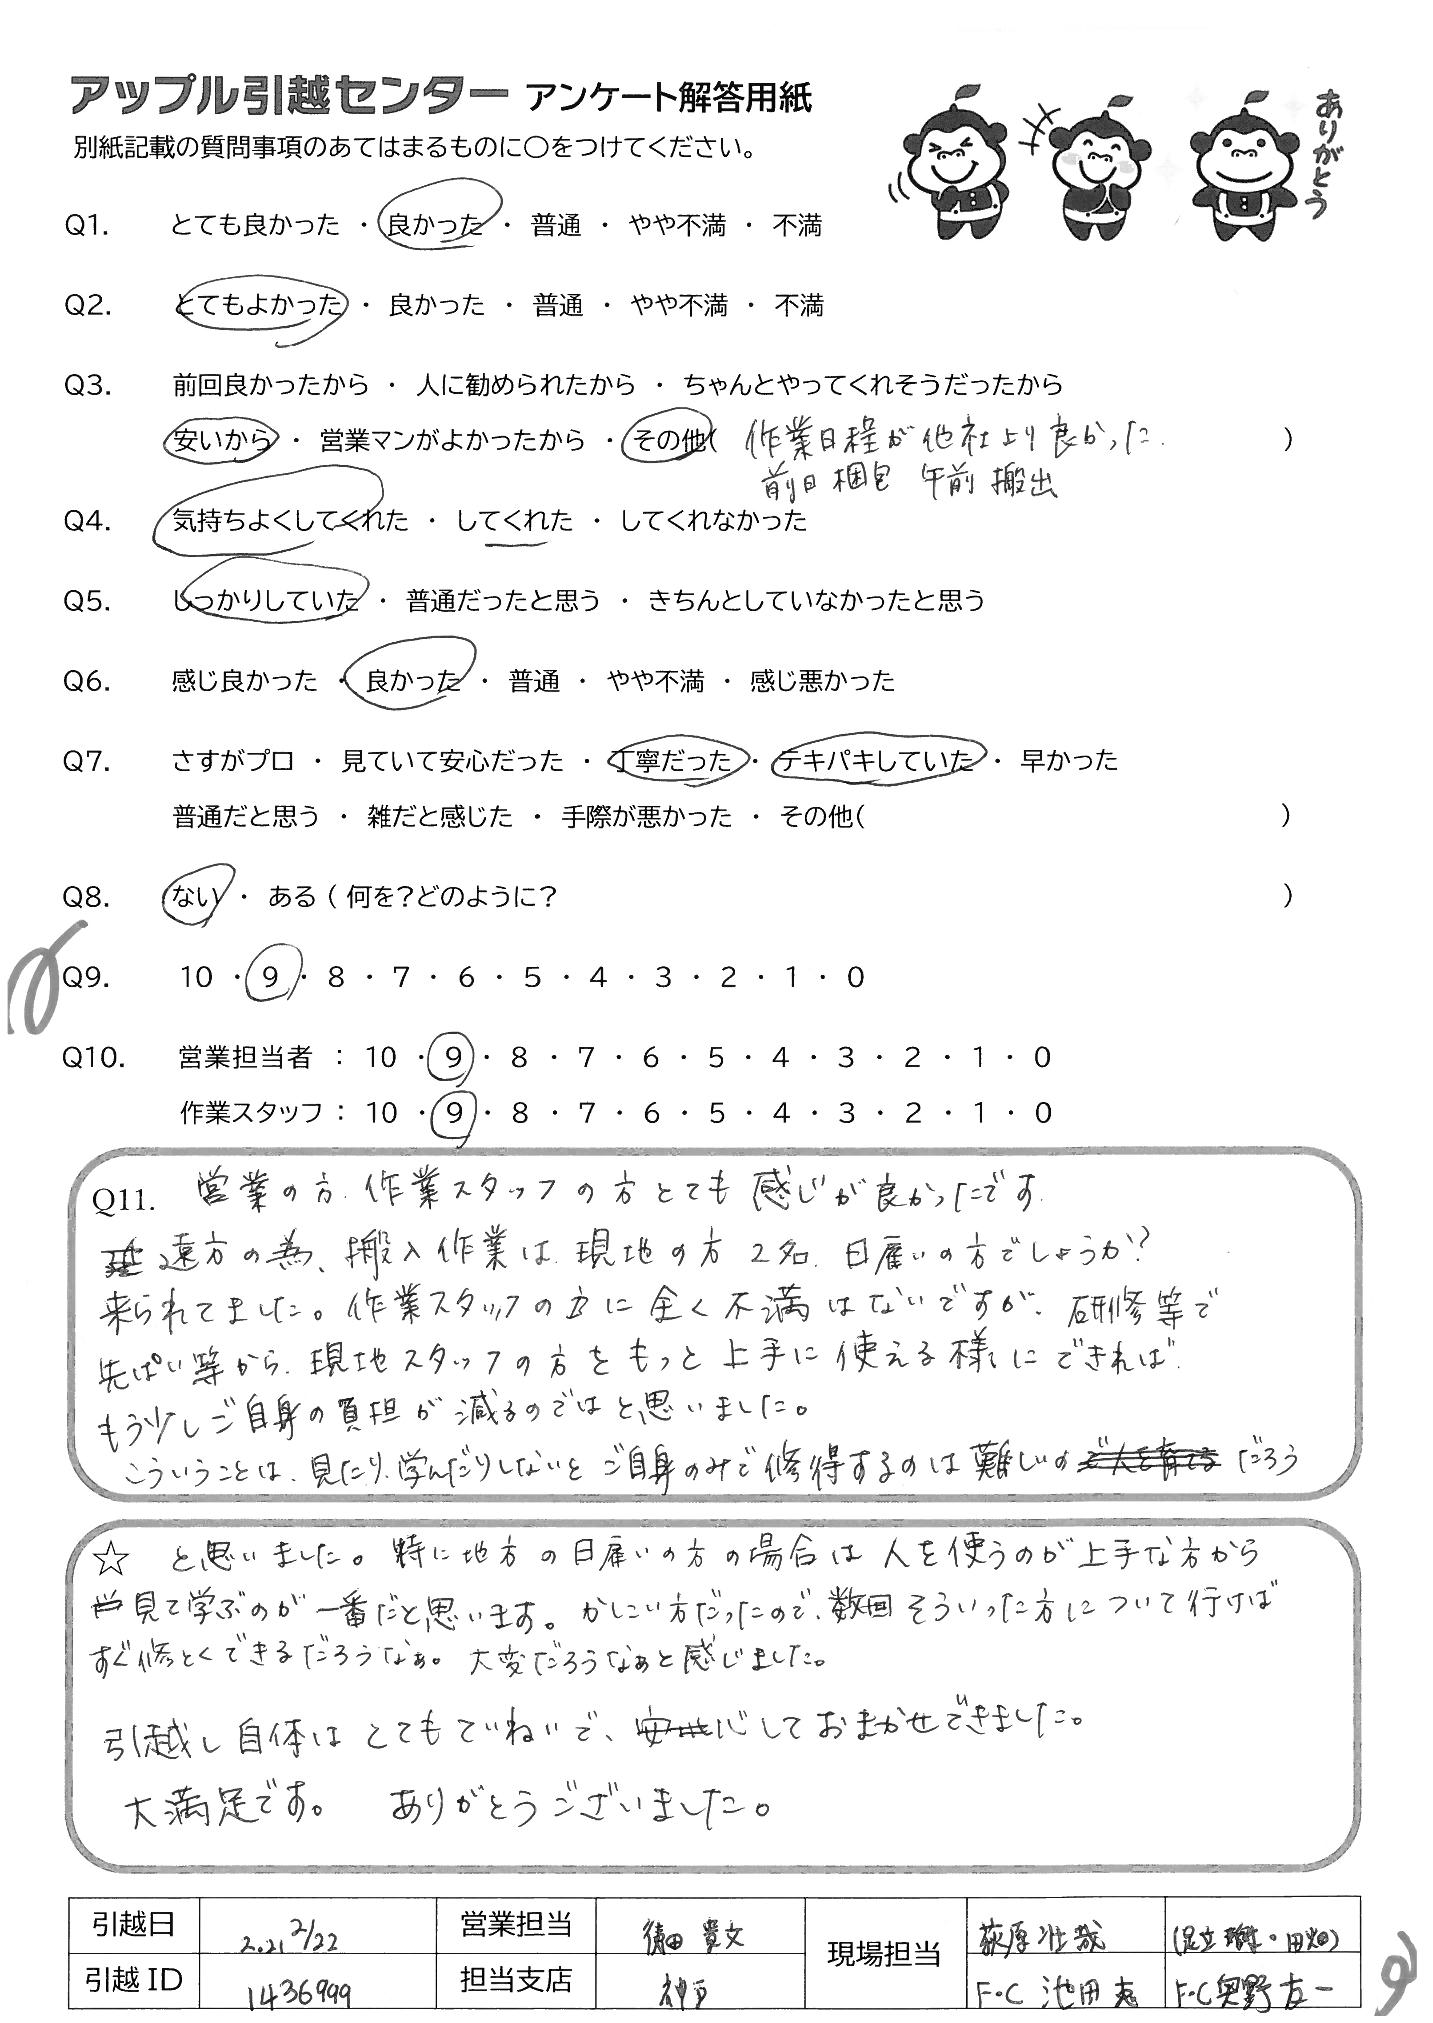 アップル引越センター アンケート解答用紙
ありがとう
別紙記載の質問事項のあてはまるものに○をつけてください。
Q1. とても良かった ・ 良かった ・ 普通 ・ やや不満 ・ 不満
Q2. とてもよかった ・ 良かった ・ 普通 ・ やや不満 ・ 不満
Q3. 前回良かったから ・ 人に勧められたから ・ ちゃんとやってくれそうだったから
安いから ・ 営業マンがよかったから ・ その他( 作業日程が他社より良かった. )
前日梱包 午前搬出
Q4. 気持ちよくしてくれた ・ してくれた ・ してくれなかった
Q5. しっかりしていた ・ 普通だったと思う ・ きちんとしていなかったと思う
Q6. 感じ良かった ・ 良かった ・ 普通 ・ やや不満 ・ 感じ悪かった
Q7. さすがプロ ・ 見ていて安心だった ・ 丁寧だった ・ テキパキしていた ・ 早かった
普通だと思う ・ 雑だと感じた ・ 手際が悪かった ・ その他( )
Q8. ない ・ ある ( 何を?どのように? )
Q9. 10 ・ 9 ・ 8 ・ 7 ・ 6 ・ 5 ・ 4 ・ 3 ・ 2 ・ 1 ・ 0
Q10. 営業担当者 : 10 ・ 9 ・ 8 ・ 7 ・ 6 ・ 5 ・ 4 ・ 3 ・ 2 ・ 1 ・ 0
作業スタッフ : 10 ・ 9 ・ 8 ・ 7 ・ 6 ・ 5 ・ 4 ・ 3 ・ 2 ・ 1 ・ 0
Q11. 営業の方、作業スタッフの方とても感じが良かったです.
遠方の為、搬入作業は、現地の方2名、日雇いの方でしょうか?
来られてました。作業スタッフの方に全く不満はないですが、研修等で
先ぱい等から、現地スタッフの方をもっと上手に使える様にできれば、
もう少しご自身の負担が減るのではと思いました。
こういうことは、見たり、学んだりしないとご自身のみで修得するのは難しいのだろう
☆ と思いました。特に地方の日雇いの方の場合は人を使うのが上手な方から
見て学ぶのが一番だと思います。かしこい方だったので、数回そういった方について行けば
すぐ修とくできるだろうなぁ。大変だろうなぁと感じました。
引越し自体はとてもていねいで、安心しておまかせできました。
大満足です。 ありがとうございました。
引越日 2021 2/22 営業担当 徳田 貴文 現場担当 荻原壮哉 (足立 ・田畑)
引越ID 1436999 担当支店 神戸 F・C 池田 F・C 奥野 一